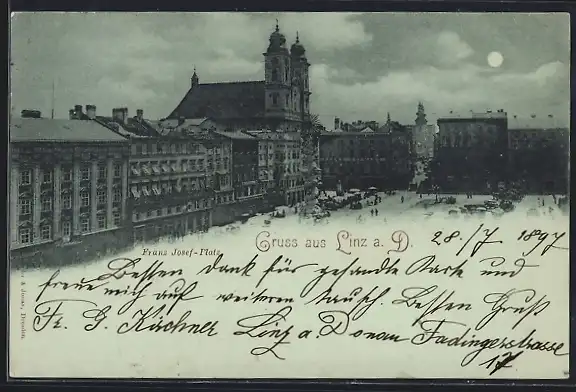 Franz Josef-Platz
Gruss aus Linz a. D.
28/7 1897
Besten Dank für gesandte Karte und
freue mich auf weiteren Tausch. Besten Gruß
Fr. G. Kirchner Linz a. Donau Fadingerstrasse
17
& Jonas, Dresden.